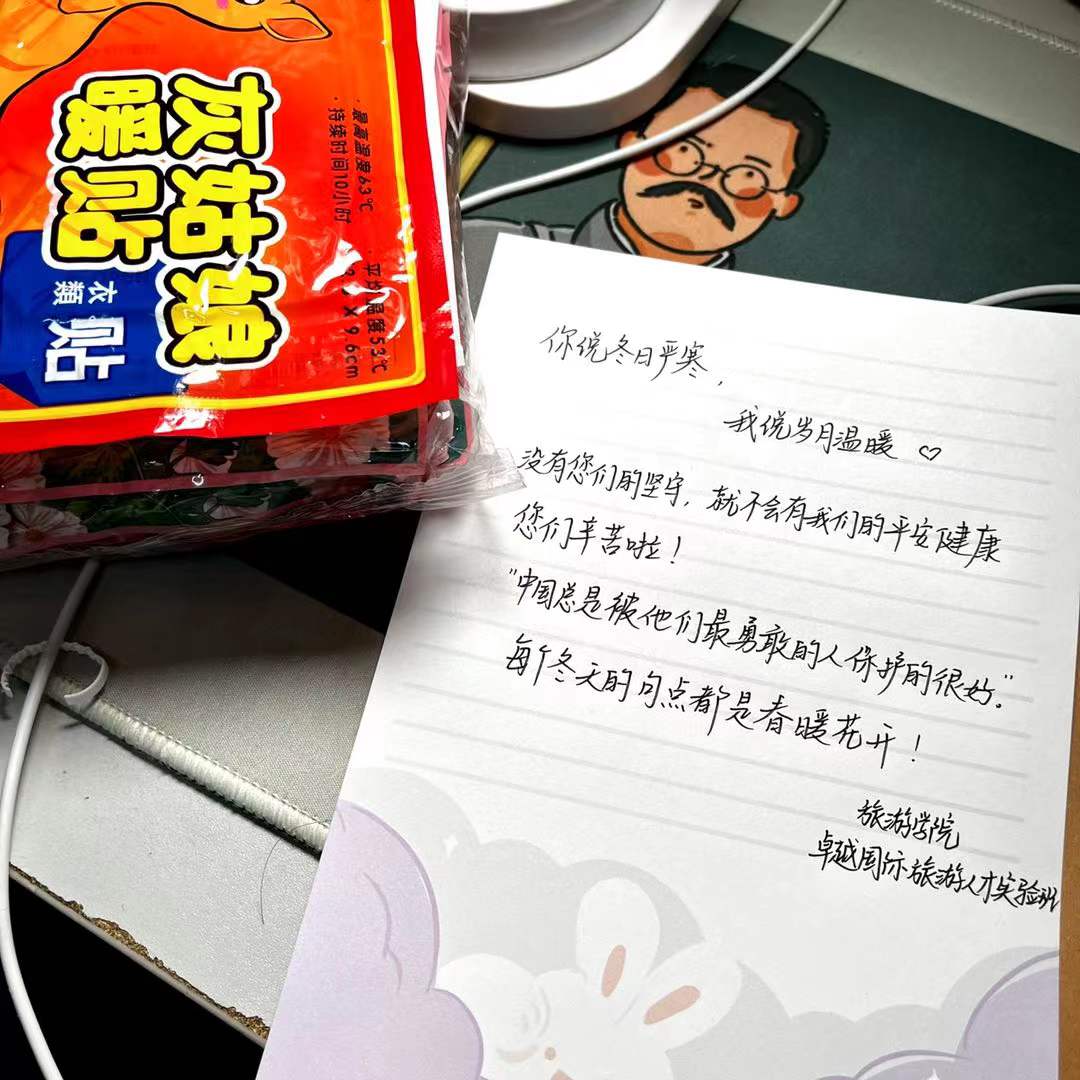 灰姑娘
暖贴
衣類
貼
·最高温度63℃
·持续时间10小时
·平均温度53℃
X 9.6cm
你说冬日严寒，
我说岁月温暖 ♡
没有您们的坚守，就不会有我们的平安健康
您们辛苦啦！
"中国总是被他们最勇敢的人保护的很好。"
每个冬天的句点都是春暖花开！
旅游学院
卓越国际旅游人才实验班